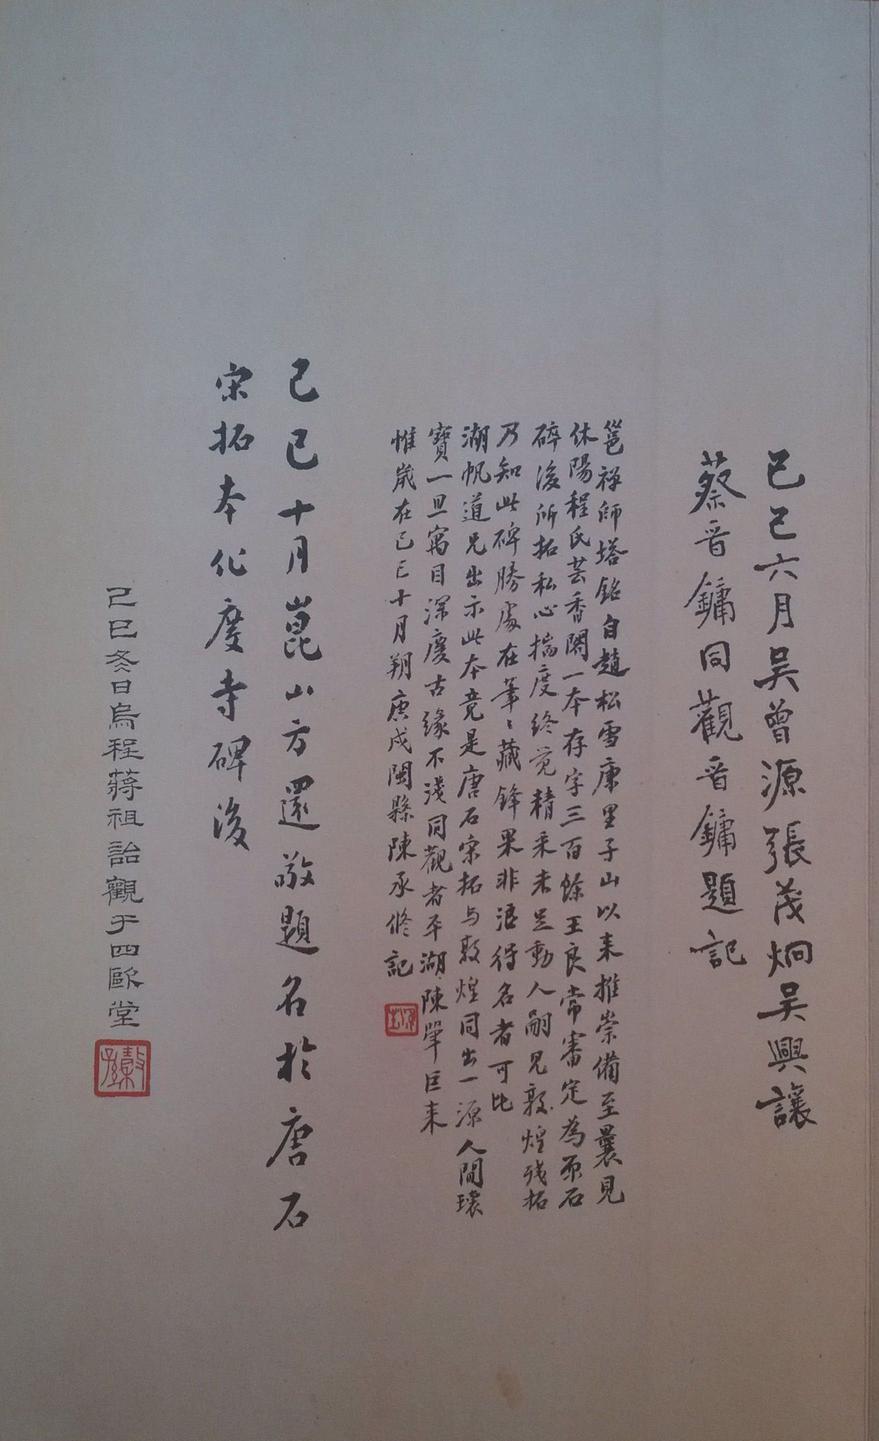 己巳六月吴曾源張茂炯吴興讓
蔡晋鏞同觀晋鏞題記
邕禅師塔銘自趙松雪康里子山以来推崇備至曩見
休陽程氏芸香閣一本存字三百餘王良常審定為原石
碎後所拓私心揣度终觉精采未足動人嗣見敦煌残拓
乃知此碑勝處在筆筆藏鋒果非浪得名者可比
湖帆道兄出示此本竟是唐石宋拓与敦煌同出一源人間瓌
寶一旦寓目深慶古缘不浅同觀者平湖陳鞏巨来
惟歲在己巳十月朔庚戌閩縣陳承修記
己巳十月崑山方還敬題名於唐石
宋拓本化度寺碑後
己巳冬日烏程蔣祖詒觀于四歐堂